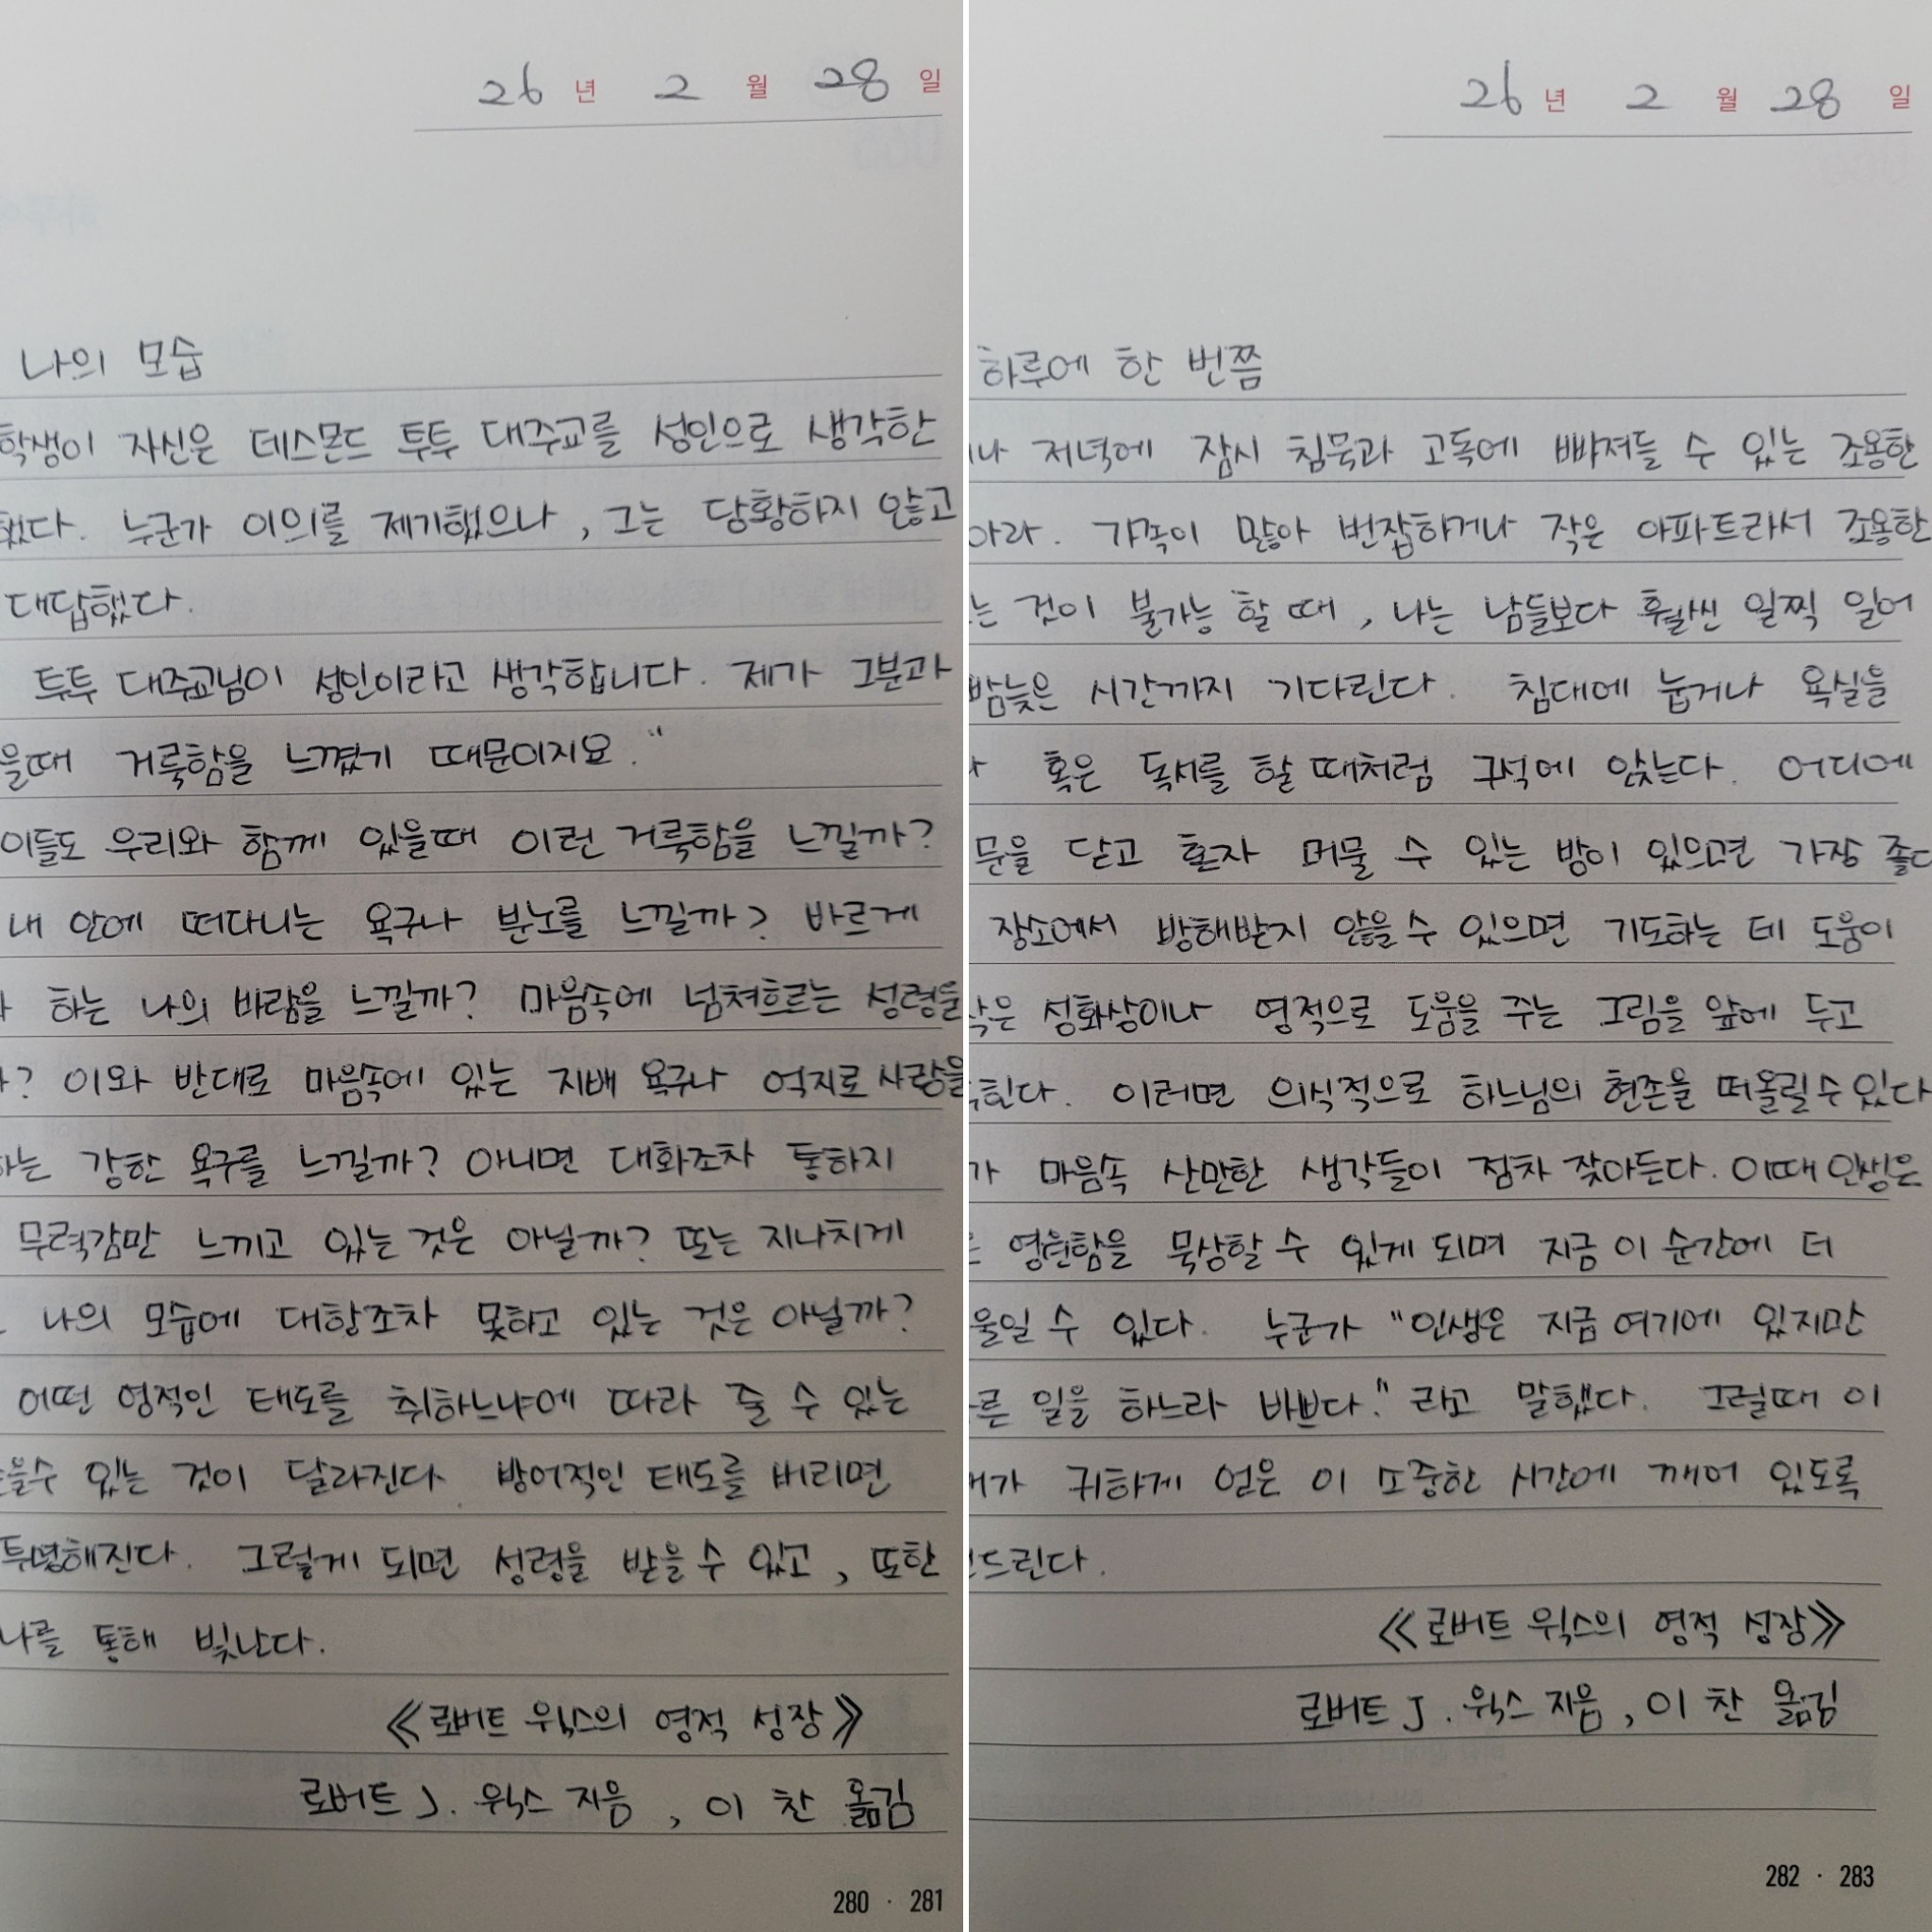 26 년 2 월 28 일
나의 모습
학생이 자신은 데스몬드 투투 대주교를 성인으로 생각한
했다. 누군가 이의를 제기했으나, 그는 당황하지 않고
대답했다.
투투 대주교님이 성인이라고 생각합니다. 제가 그분과
을때 거룩함을 느꼈기 때문이지요."
이들도 우리와 함께 있을때 이런 거룩함을 느낄까?
내 안에 떠다니는 욕구나 분노를 느낄까? 바르게
하는 나의 바람을 느낄까? 마음속에 넘쳐흐르는 성령을
? 이와 반대로 마음속에 있는 지배 욕구나 억지로 사랑을
하는 강한 욕구를 느낄까? 아니면 대화조차 통하지
무력감만 느끼고 있는 것은 아닐까? 또는 지나치게
나의 모습에 대항조차 못하고 있는 것은 아닐까?
어떤 영적인 태도를 취하느냐에 따라 줄 수 있는
을수 있는 것이 달라진다. 방어적인 태도를 버리면
투명해진다. 그렇게 되면 성령을 받을 수 있고, 또한
나를 통해 빛난다.
《로버트 윅스의 영적 성장》
로버트 J. 윅스 지음, 이 찬 옮김
280 · 281
26 년 2 월 28 일
하루에 한 번쯤
나 저녁에 잠시 침묵과 고독에 빠져들 수 있는 조용한
아라. 가족이 많아 번잡하거나 작은 아파트라서 조용한
는 것이 불가능 할 때, 나는 남들보다 훨씬 일찍 일어
밤늦은 시간까지 기다린다. 침대에 눕거나 욕실을
혹은 독서를 할 때처럼 구석에 앉는다. 어디에
문을 닫고 혼자 머물 수 있는 방이 있으면 가장 좋다
장소에서 방해받지 않을 수 있으면 기도하는 데 도움이
작은 성화상이나 영적으로 도움을 주는 그림을 앞에 두고
힌다. 이러면 의식적으로 하느님의 현존을 떠올릴 수 있다
가 마음속 산만한 생각들이 점차 잦아든다. 이때 인생은
영원함을 묵상할 수 있게 되며 지금 이 순간에 더
울일 수 있다. 누군가 "인생은 지금 여기에 있지만
른 일을 하느라 바쁘다." 라고 말했다. 그럴때 이
가 귀하게 얻은 이 소중한 시간에 깨어 있도록
드린다.
《로버트 윅스의 영적 성장》
로버트 J. 윅스 지음, 이 찬 옮김
282 · 283